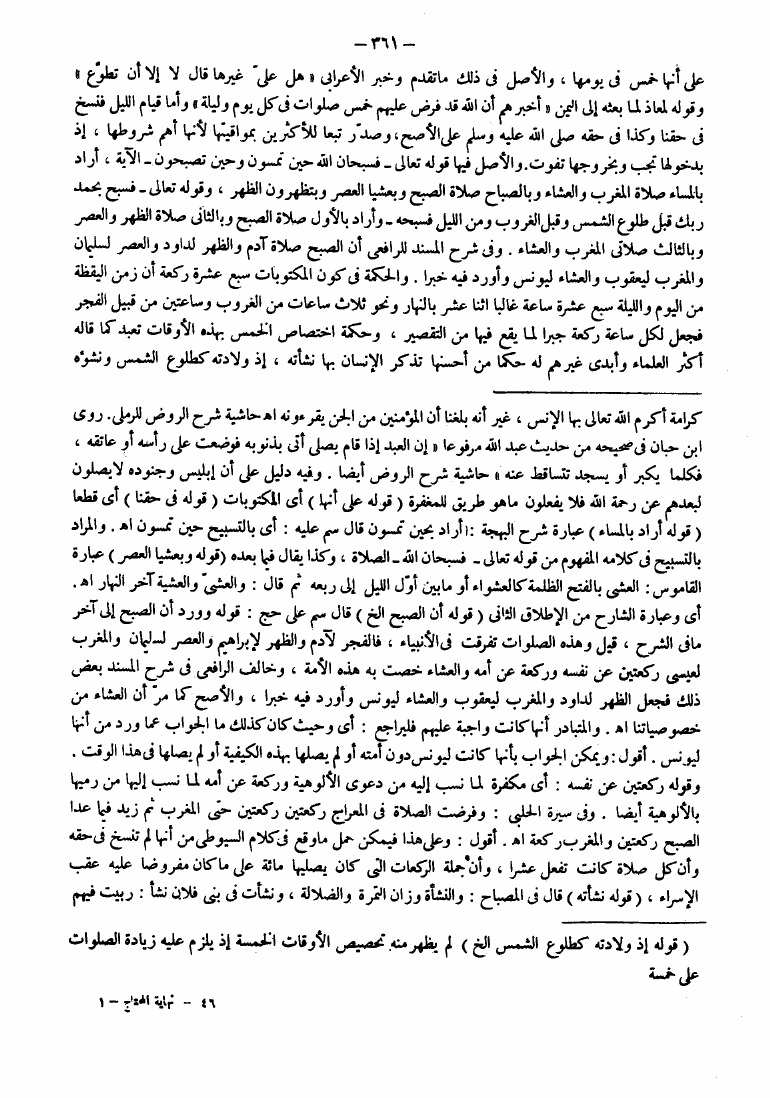 — ٣٦١ —
على أنها خمس فى يومها ، والأصل فى ذلك ماتقدم وخبر الأعرابى « هل علىّ غيرها قال لا إلا أن تطوّع »
وقوله لمعاذ لما بعثه إلى اليمن « أخبرهم أن الله قد فرض عليهم خمس صلوات فى كل يوم وليلة » وأما قيام الليل فنسخ
فى حقنا وكذا فى حقه صلى الله عليه وسلم على الأصح، وصدّر تبعا للأكثرين بمواقيتها لأنها أهم شروطها ، إذ
بدخولها تجب وبخروجها تفوت. والأصل فيها قوله تعالى ـ فسبحان الله حين تمسون وحين تصبحون ـ الآية ، أراد
بالمساء صلاة المغرب والعشاء وبالصباح صلاة الصبح وبعشيا العصر وبتظهرون الظهر ، وقوله تعالى ـ فسبح بحمد
ربك قبل طلوع الشمس وقبل الغروب ومن الليل فسبحه ـ وأراد بالأول صلاة الصبح وبالثانى صلاة الظهر والعصر
وبالثالث صلاتى المغرب والعشاء . وفى شرح المسند للرافعى أن الصبح صلاة آدم والظهر لداود والعصر لسليمان
والمغرب ليعقوب والعشاء ليونس وأورد فيه خبرا . والحكمة فى كون المكتوبات سبع عشرة ركعة أن زمن اليقظة
من اليوم والليلة سبع عشرة ساعة غالبا اثنا عشر بالنهار ونحو ثلاث ساعات من الغروب وساعتين من قبيل الفجر
فجعل لكل ساعة ركعة جبرا لما يقع فيها من التقصير ، وحكمة اختصاص الخمس بهذه الأوقات تعبد كما قاله
أكثر العلماء وأبدى غيرهم له حكما من أحسنها تذكر الإنسان بها نشأته ، إذ ولادته كطلوع الشمس ونشوه
كرامة أكرم الله تعالى بها الإنس ، غير أنه بلغنا أن المؤمنين من الجن يقرءونه اه حاشية شرح الروض للرملى. روى
ابن حبان فى صحيحه من حديث عبد الله مرفوعا « إن العبد إذا قام يصلى أتى بذنوبه فوضعت على رأسه أو عاتقه ،
فكلما يكبر أو يسجد تتساقط عنه » حاشية شرح الروض أيضا . وفيه دليل على أن إبليس وجنوده لايصلون
لبعدهم عن رحمة الله فلا يفعلون ماهو طريق للمغفرة ( قوله على أنها ) أى المكتوبات ( قوله فى حقنا ) أى قطعا
( قوله أراد بالمساء ) عبارة شرح البهجة : أراد بحين تمسون قال سم عليه : أى بالتسبيح حين تمسون اه . والمراد
بالتسبيح فى كلامه المفهوم من قوله تعالى ـ فسبحان الله ـ الصلاة ، وكذا يقال فيما بعده ( قوله وبعشيا العصر ) عبارة
القاموس : العشى بالفتح الظلمة كالعشواء أو مابين أوّل الليل إلى ربعه ثم قال : والعشىّ والعشية آخر النهار اه .
أى وعبارة الشارح من الإطلاق الثانى ( قوله أن الصبح الخ ) قال سم على حج : قوله وورد أن الصبح إلى آخر
مافى الشرح ، قيل وهذه الصلوات تفرقت فى الأنبياء ، فالفجر لآدم والظهر لإبراهيم والعصر لسليمان والمغرب
لعيسى ركعتين عن نفسه وركعة عن أمه والعشاء خصت به هذه الأمة ، وخالف الرافعى فى شرح المسند بعض
ذلك فجعل الظهر لداود والمغرب ليعقوب والعشاء ليونس وأورد فيه خبرا ، والأصح كما مرّ أن العشاء من
خصوصياتنا اه . والمتبادر أنها كانت واجبة عليهم فليراجع : أى وحيث كان كذلك ما الجواب عما ورد من أنها
ليونس . أقول : ويمكن الجواب بأنها كانت ليونس دون أمته أو لم يصلها بهذه الكيفية أو لم يصلها فى هذا الوقت .
وقوله ركعتين عن نفسه : أى مكفرة لما نسب إليه من دعوى الألوهية وركعة عن أمه لما نسب إليها من رميها
بالألوهية أيضا . وفى سيرة الحلبى : وفرضت الصلاة فى المعراج ركعتين ركعتين حتى المغرب ثم زيد فيما عدا
الصبح ركعتين والمغرب ركعة اه . أقول : وعلى هذا فيمكن حمل ماوقع فى كلام السيوطى من أنها لم تنسخ فى حقه
وأن كل صلاة كانت تفعل عشرا ، وأن جملة الركعات التى كان يصليها مائة على ماكان مفروضا عليه عقب
الإسراء ، ( قوله نشأته ) قال فى المصباح : والنشأة وزان التمرة والضلالة ، ونشأت فى بنى فلان نشأ : ربيت فيهم
( قوله إذ ولادته كطلوع الشمس الخ ) لم يظهر منه تخصيص الأوقات الخمسة إذ يلزم عليه زيادة الصلوات
على خمسة
٤٦ – نهاية المحتاج – ١